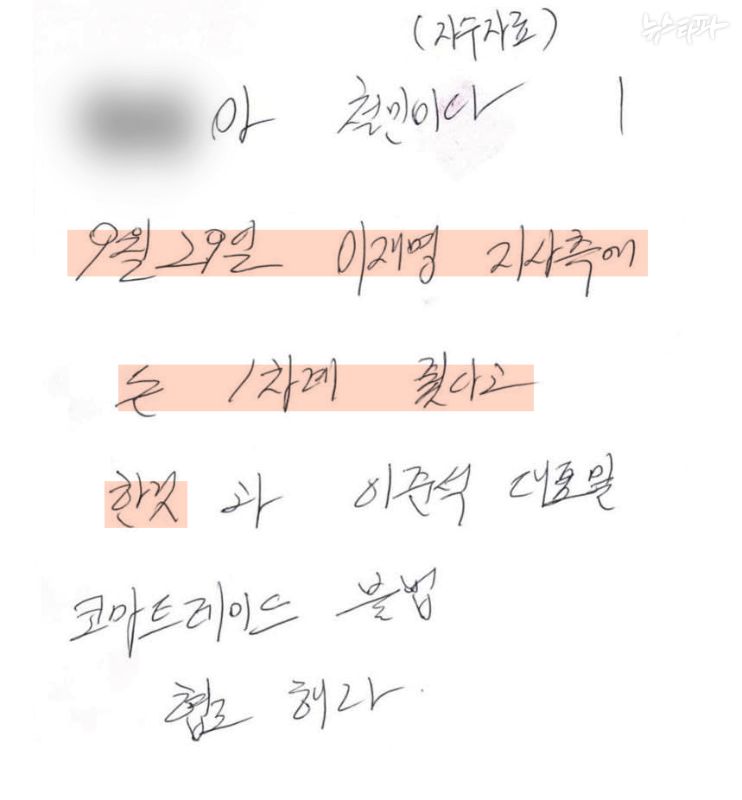 (자수자료)
뉴스타파
아 철민이다 |
9월 29일 이재명 지사측에
는 1차례 줬다고
한것 과 이준석 대표 및
코마트레이드 불법
협조 해라.